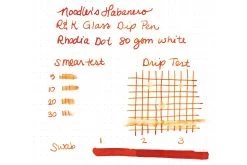 Noodler's Habanero
R+K Glass Dip Pen
Rhodia Dot 80 gsm white
Smear-test Drip Test
5
10
20
30
Swab 1 2 3